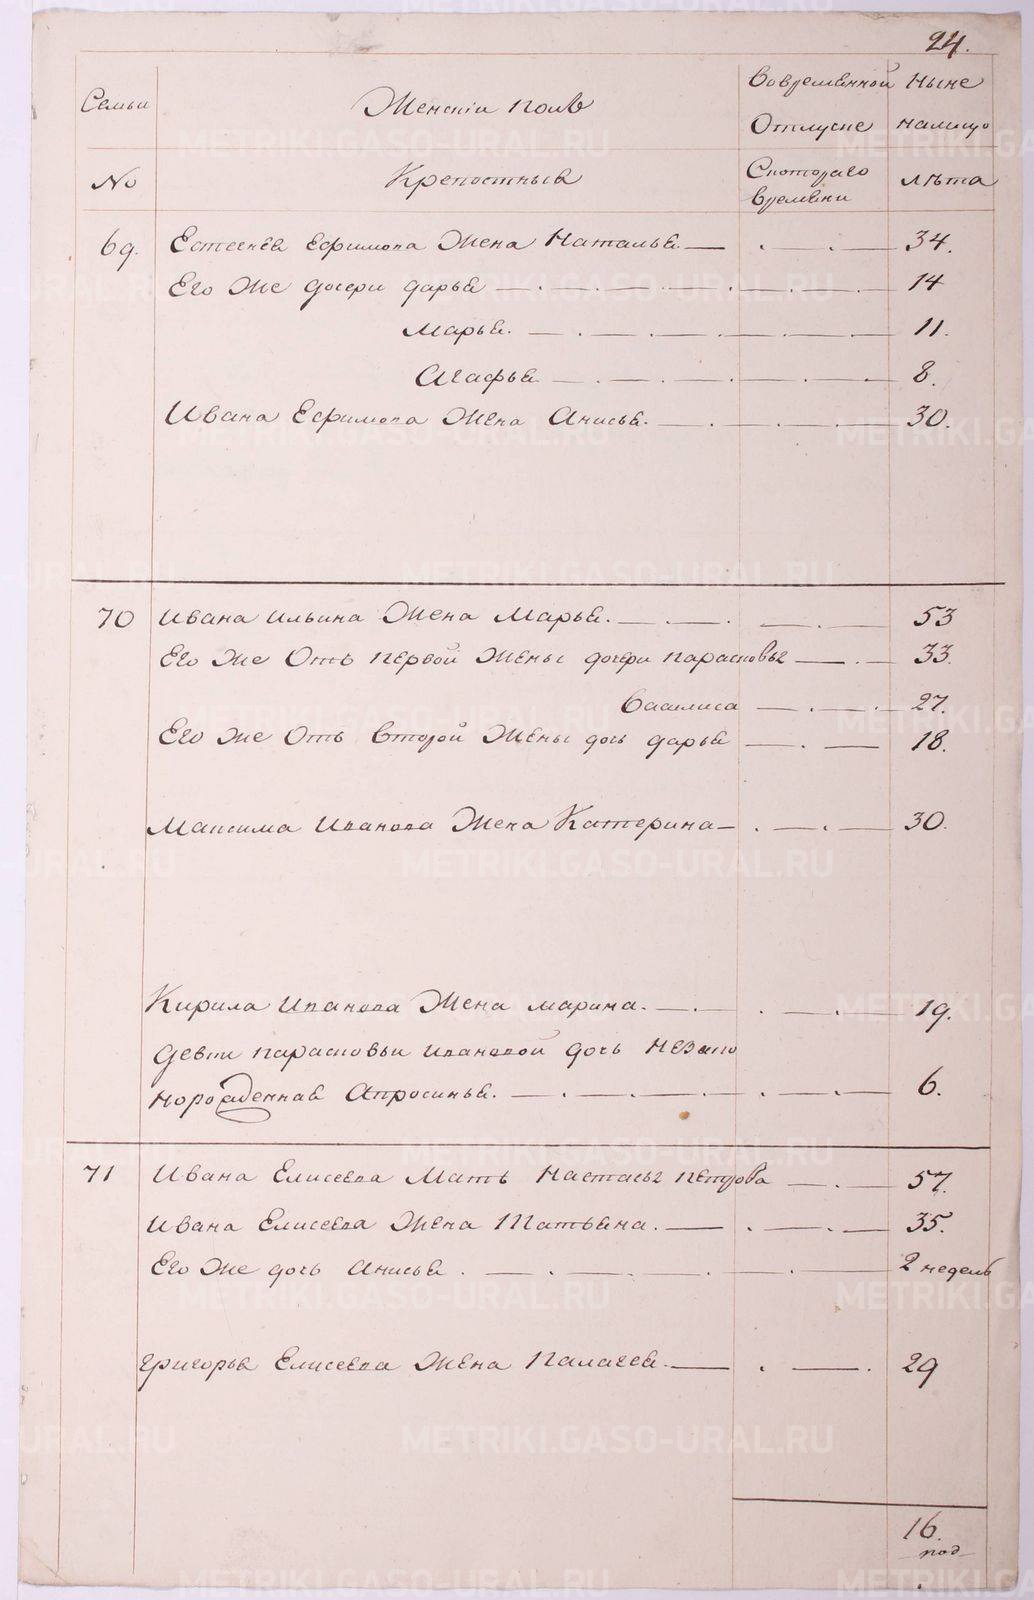 24.
Семьи Женскій полъ Вовременной Ныне
Отлучке налицо
No Крепостныя Скотораго лѣта
времени
69. Естегнея Ефимова Жена Наталья — . — . — 34.
Его же дочери дарья — . — . — . — . — 14
Марья. — . — . — . — 11.
Агафья — . — . — . — 8.
Ивана Ефимова Жена Анисья. — . — . — 30.
70 Ивана Ильина Жена Марья. — . — . — . — 53
Его же Отъ первой Жены дочери парасковья — . — 33.
Василиса — . — . 27.
Его же Отъ второй Жены дочь дарья — . — 18.
Максима Иванова Жена Катерина — . — . — 30.
Кирила Иванова Жена марина. — . — . — . — 19.
девки парасковьи ивановой дочь незако
норожденная Апросинья. — . — . — . — . — 6.
71 Ивана Елисеева Мать Настасья петрова — . — 57.
Ивана Елисеева Жена Татьяна. — . — . — 35.
Его же дочь Анисья . — . — . — . — 2 недель
григорья Елисеева Жена Палагея. — . — . 29
16.
под
METRIKI.GASO-URAL.RU